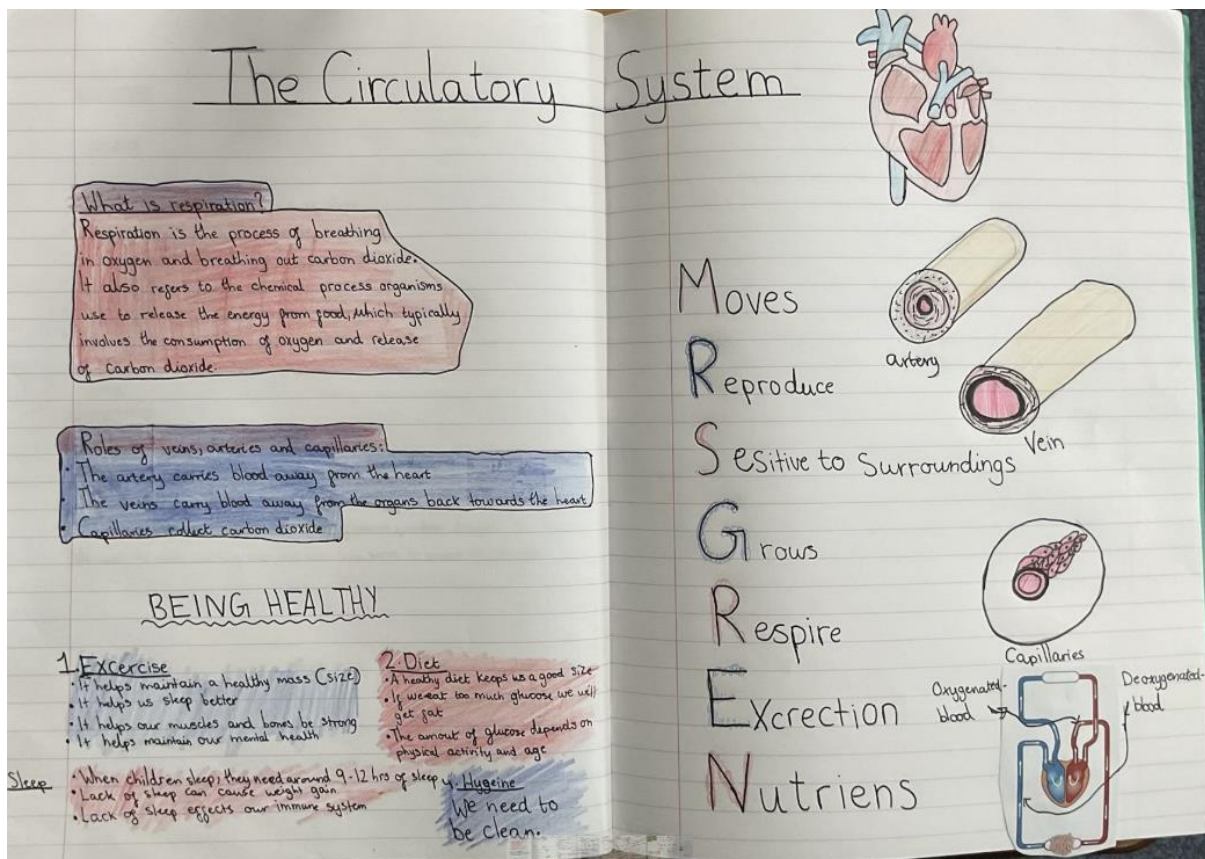 The Circulatory System
What is respiration?
Respiration is the process of breathing
in oxygen and breathing out carbon dioxide.
It also refers to the chemical process organisms
use to release the energy from food, which typically
involves the consumption of oxygen and release
of carbon dioxide.
Roles of veins, arteries and capillaries:
• The artery carries blood away from the heart
• The veins carry blood away from the organs back towards the heart
• Capillaries collect carbon dioxide
BEING HEALTHY
1. Excercise
• It helps maintain a healthy mass (size)
• It helps us sleep better
• It helps our muscles and bones be strong
• It helps maintain our mental health
2. Diet
• A healthy diet keeps us a good size
• If we eat too much glucose we will
get fat
• The amout of glucose depends on
physical activity and age
Sleep
• When children sleep, they need around 9-12 hrs of sleep
• Lack of sleep can cause weight gain
• Lack of sleep effects our immune system
4. Hygeine
We need to
be clean.
Moves
Reproduce
Sesitive to Surroundings
Grows
Respire
Excrection
Nutriens
artery
Vein
Capillaries
Oxygenated-
blood
Deoxygenated-
blood